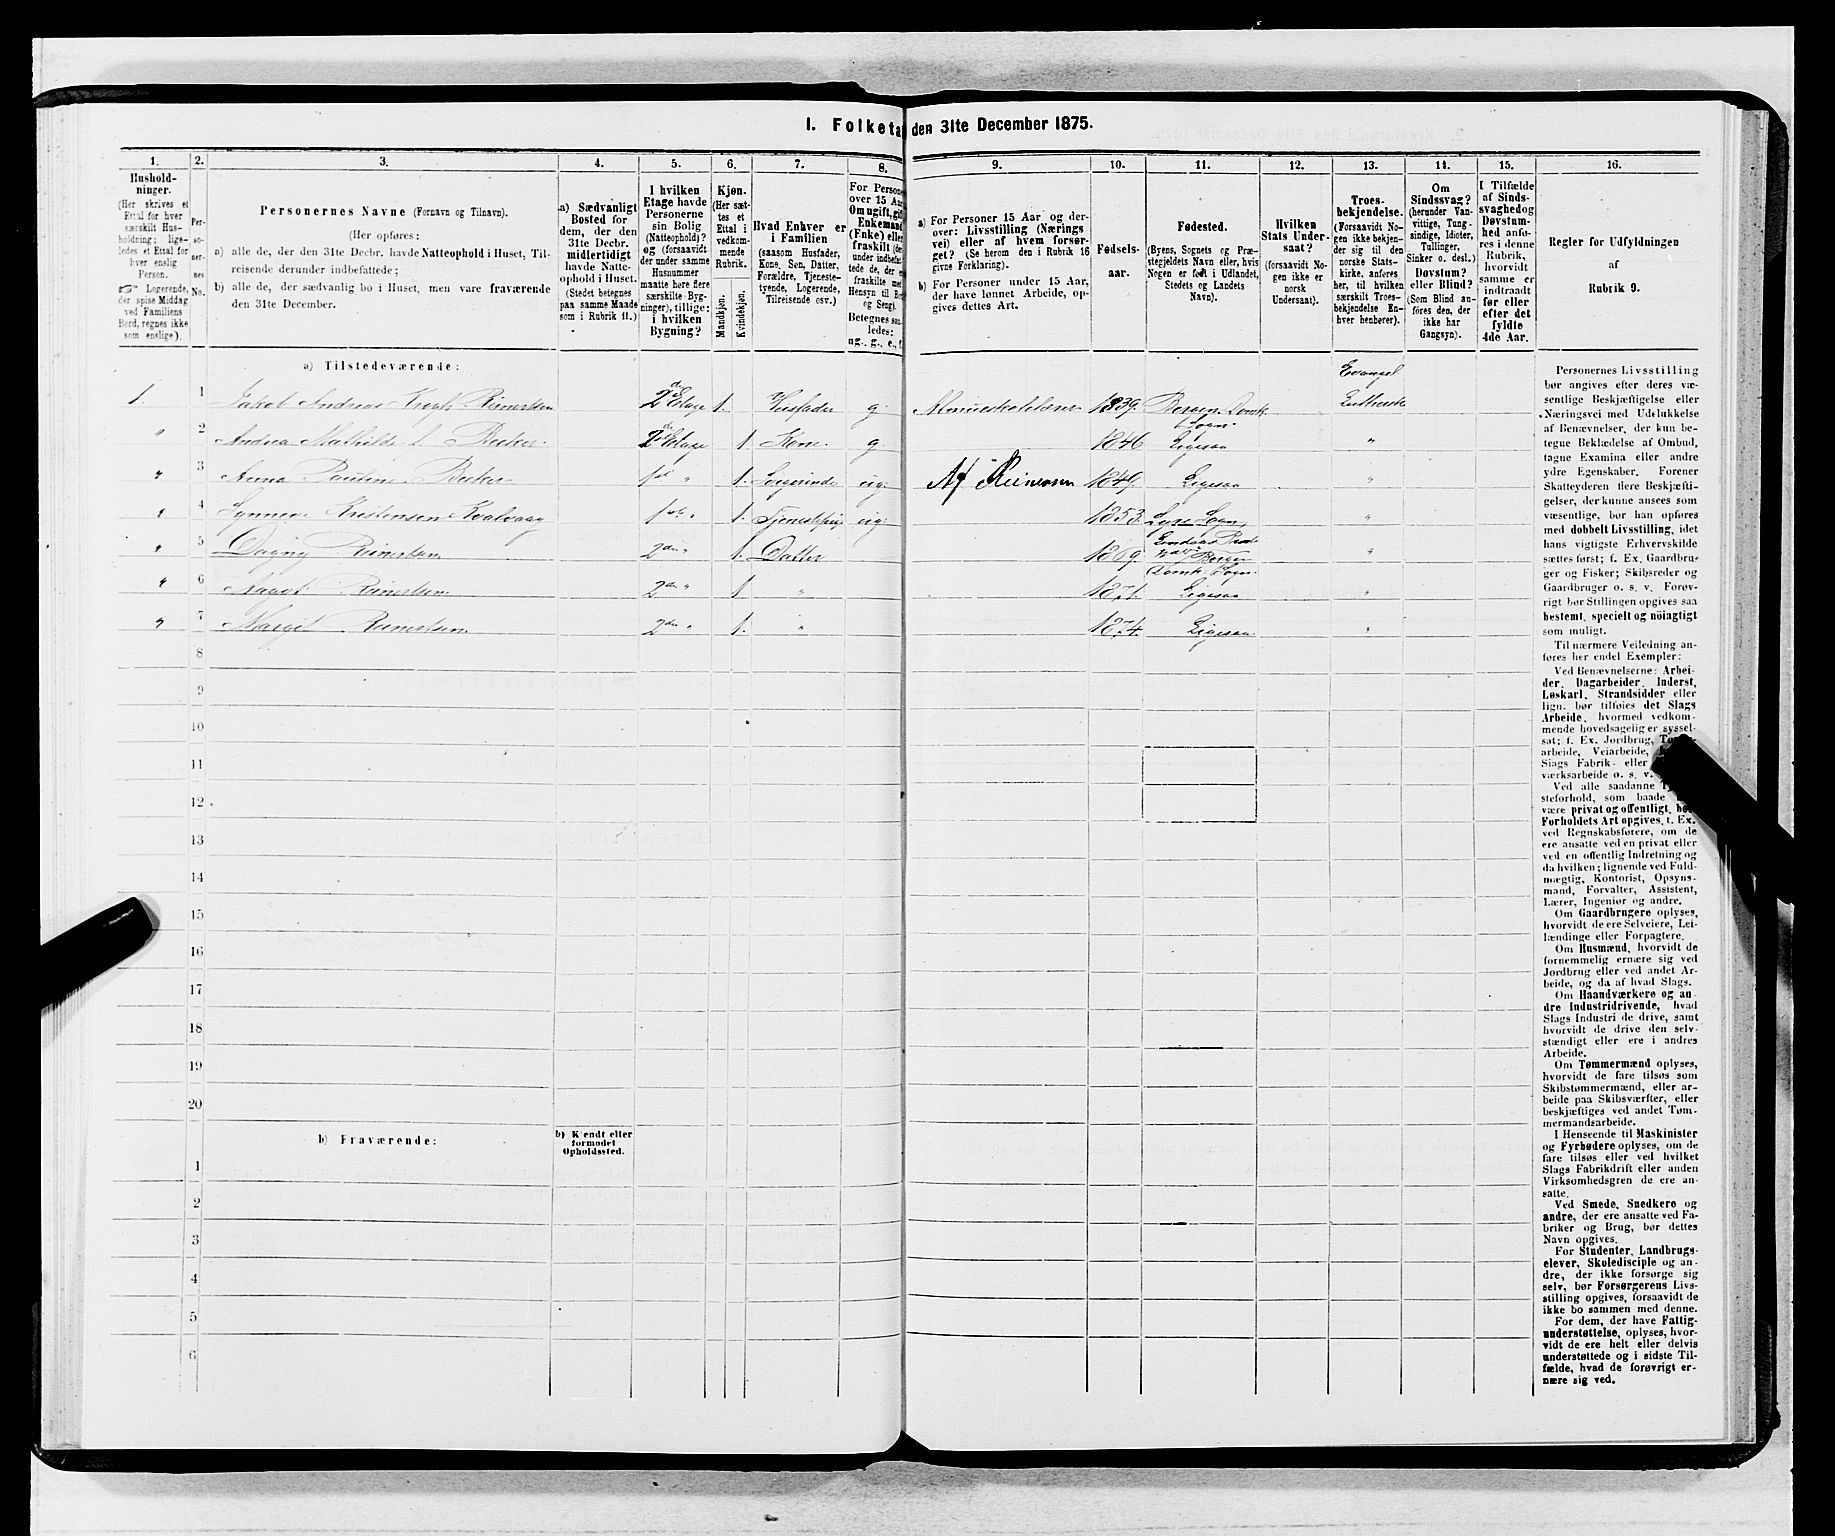 I. Folketa den 31te December 1875.
1.
2.
3.
4.
5.
6.
7.
8.
9.
10.
11.
12.
13.
14.
15.
16.
Hushold-
ninger.
(Her skrives et
Ettal for hver
særskilt Hus-
holdning; lige-
ledes et Ettal for
hver enslig
Person.
☞ Logerende,
der spise Middag
ved Familiens
Bord, regnes ikke
som enslige).
Per-
so-
ner-
nes
No.
Personernes Navne (Fornavn og Tilnavn).
(Her opføres:
a) alle de, der den 31te Decbr. havde Natteophold i Huset, Til-
reisende derunder indbefattede;
b) alle de, der sædvanlig bo i Huset, men vare fraværende
den 31te December.
a) Sædvanligt
Bosted for
dem, der den
31te Decbr.
midlertidigt
havde Natte-
ophold i Huset.
(Stedet betegnes
paa samme Maade
som i Rubrik 11.)
I hvilken
Etage havde
Personerne
sin Bolig
(Natteophold)?
og (forsaavidt
der under samme
Husnummer
maatte høre flere
særskilte Byg-
ninger), tillige:
i hvilken
Bygning?
Kjøn.
(Her sæt-
tes et
Ettal i
vedkom-
mende
Rubrik.
Mandkjøn.
Kvindekjøn.
Hvad Enhver er
i Familien
(saasom Husfader,
Kone, Søn, Datter,
Forældre, Tjeneste-
tyende, Logerende,
Tilreisende osv.)
For Persone
over 15 Aar
Om ugift, gift
Enkemand
(Enke) eller
fraskilt (der
under indbefat
tede de, der e
fraskilte med
Hensyn til Bo
og Seng).
Betegnes saa
ledes:
ug., g., e., f.
a) For Personer 15 Aar og der-
over: Livsstilling (Nærings
vei) eller af hvem forsør-
get? (Se herom den i Rubrik 16
givne Forklaring).
b) For Personer under 15 Aar,
der have lønnet Arbeide, op-
gives dettes Art.
Fødsels-
aar.
Fødested.
(Byens, Sognets og Præ-
stegjeldets Navn eller, hvis
Nogen er født i Udlandet,
Stedets og Landets
Navn).
Hvilken
Stats Under-
saat?
(forsaavidt No-
gen ikke er
norsk
Undersaat).
Troes-
bekjendelse.
(Forsaavidt No-
gen ikke bekjen-
der sig til den
norske Stats-
kirke, anføres
her, til hvilken
særskilt Troes-
bekjendelse En-
hver henhører).
Om
Sindssvag?
(herunder Van-
vittige, Tung-
sindige, Idioter,
Tullinger,
Sinker o. desl.)
Døvstum?
eller Blind?
(Som Blind an-
føres den, der
ikke har
Gangsyn).
I Tilfælde
af Sinds-
svaghed og
Døvstum-
hed anfø-
res i denne
Rubrik,
hvorvidt
samme er
indtraadt
før eller
efter det
fyldte
4de Aar.
Regler for Udfyldningen
af
Rubrik 9.
a) Tilstedeværende:
Evangel
1. 1 Jakob Andreas Krogh Reinertsen 2den Etage 1. Husfader g. 1839. Bergen Domk Lutherske
Sogn.
" 2 Andrea Mathilde f. Becker 2den Etage 1 Kone g 1846 Ligesaa "
" 3 Anna Pauline Becker 1ste " 1. ug. Af 1849. Ligesaa "
" 4 Synneve Kristensen Kvalvaag 1ste " 1. Tjenestepige ug. 1853. Sogn "
" 5 Dagny Reinertsen 2den " 1. Datter 1869. Bergen "
Domk. Sogn.
" 6 Reinertsen 2den " 1 " 1871. Ligesaa "
" 7 Margit Reinertsen 2den " 1. " 1874. Ligesaa "
8
9
10
11
12
13
14
15
16
17
18
19
20
b) Fraværende:
b) Kjendt eller
formodet
Opholdssted.
1
2
3
4
5
6
Personernes Livsstilling
bør angives efter deres væ-
sentlige Beskjæftigelse eller
Næringsvei med Udelukkelse
af Benævnelser, der kun be-
tegne Beklædelse af Ombud,
tagne Examina eller andre
ydre Egenskaber. Forener
Skatteyderen flere Beskjæfti-
gelser, der kunne ansees som
væsentlige, bør han opføres
med dobbelt Livsstilling, idet
hans vigtigste Erhvervskilde
sættes først; f. Ex. Gaardbru-
ger og Fisker; Skibsreder og
Gaardbruger o. s. v. Forøv-
rigt bør Stillingen opgives saa
bestemt, specielt og nöiagtigt
som muligt.
Til nærmere Veiledning an-
føres her endel Exempler:
Ved Benævnelserne: Arbei-
der, Dagarbeider, Inderst,
Løskarl, Strandsidder eller
lign. bør tilføies det Slags
Arbeide, hvormed vedkom-
mende hovedsagelig er syssel-
sat; f. Ex. Jordbrug,
arbeide, Veiarbeide,
Slags Fabrik- eller
værksarbeide o. s. v.
Ved alle saadanne
steforhold, som baade
være privat og offentligt, bør
Forholdets Art opgives, t. Ex.
ved Regnskabsførere, om de
ere ansatte ved en privat eller
ved en offentlig Indretning og
da hvilken; lignende ved Fuld-
mægtig, Kontorist, Opsyns-
mand, Forvalter, Assistent,
Lærer, Ingeniør og andre.
Om Gaardbrugere oplyses,
hvorvidt de ere Selveiere, Lei-
lændinge eller Forpagtere.
Om Husmænd, hvorvidt de
fornemmelig ernære sig ved
Jordbrug eller ved andet Ar-
beide, og da af hvad Slags.
Om Haandværkere og an-
dre Industridrivende, hvad
Slags Industri de drive, samt
hvorvidt de drive den selv-
stændigt eller ere i andres
Arbeide.
Om Tømmermænd oplyses,
hvorvidt de fare tilsøs som
Skibstømmermænd, eller ar-
beide paa Skibsværfter, eller
beskjæftiges ved andet Tøm-
mermandsarbeide.
I Henseende til Maskinister
og Fyrbødere oplyses, om de
fare tilsøs eller ved hvilket
Slags Fabrikdrift eller anden
Virksomhedsgren de ere an-
satte.
Ved Smede, Snedkere og
andre, der ere ansatte ved Fa-
briker og Brug, bør dettes
Navn opgives.
For Studenter, Landbrugs-
elever, Skoledisciple og an-
dre, der ikke forsørge sig
selv, bør Forsørgerens Livs-
stilling opgives, forsaavidt de
ikke bo sammen med denne.
For dem, der have Fattig-
understøttelse, oplyses, hvor-
vidt de ere helt eller delvis
understøttede og i sidste Til-
fælde, hvad de forøvrigt er-
nære sig ved.